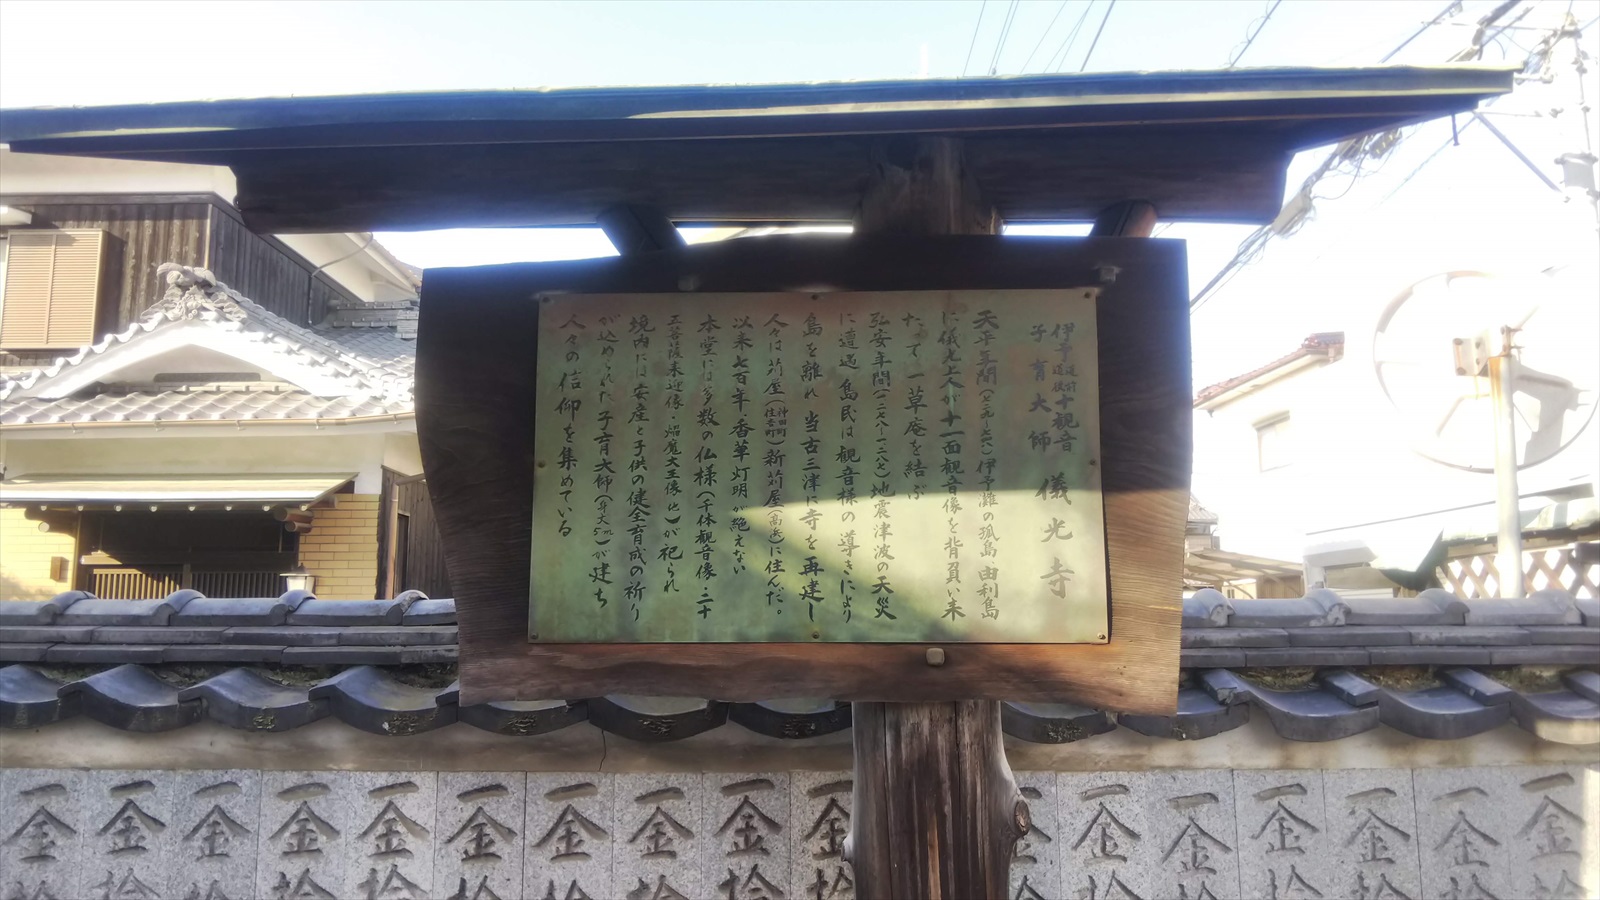 伊予道前道後十観音
子育大師 儀光寺
天平年間(七二九~七六六)伊予灘の孤島 由利島
に儀光上人が十一面観音像を背負い来
たって一草庵を結ぶ
弘安年間(一二七八~一二八七)地震津波の天災
に遭遇 島民は観音様の導きにより
島を離れ 当古三津に寺を再建し
人々は苅屋(神田町住吉町)新苅屋(高浜)に住んだ。
以来七百年・香華灯明が絶えない
本堂には多数の仏様(千体観音像・二十
五菩薩来迎像・焔魔大王像 他)が祀られ
境内には安産と子供の健全育成の祈り
が込められた子育大師(身丈5m)が建ち
人々の信仰を集めている
一金拾
一金拾
一金拾
一金拾
一金拾
一金拾
一金拾
一金拾
一金拾
一金拾
一金拾
一金拾
一金拾
一金拾
一金拾